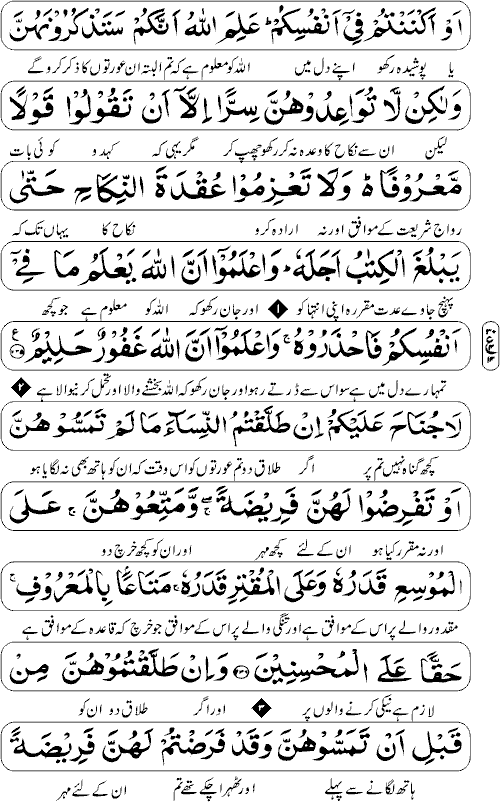 اَوْ اَكْنَنْتُمْ فِيْٓ اَنْفُسِكُمْ ؕ عَلِمَ اللّٰهُ اَنَّكُمْ سَتَذْكُرُوْنَهُنَّ
یا پوشیدہ رکھو اپنے دل میں اللہ کو معلوم ہے کہ تم البتہ ان عورتوں کا ذکر کرو گے
وَلٰكِنْ لَّا تُوَاعِدُوْهُنَّ سِرًّا اِلَّآ اَنْ تَقُوْلُوْا قَوْلًا
لیکن ان سے نکاح کا وعدہ نہ کر رکھو چھپ کر مگر یہی کہ کہدو کوئی بات
مَّعْرُوْفًا ؕ وَلَا تَعْزِمُوْا عُقْدَةَ النِّكَاحِ حَتّٰى
رواج شریعت کے موافق اور نہ ارادہ کرو نکاح کا یہاں تک کہ
يَبْلُغَ الْكِتٰبُ اَجَلَهٗ ؕ وَاعْلَمُوْٓا اَنَّ اللّٰهَ يَعْلَمُ مَا فِيْٓ
پہنچ جاوے عدت مقررہ اپنی انتہا کو ۱ اور جان رکھو کہ اللہ کو معلوم ہے جو کچھ
اَنْفُسِكُمْ فَاحْذَرُوْهُ ۚ وَاعْلَمُوْٓا اَنَّ اللّٰهَ غَفُوْرٌ حَلِيْمٌ
تمہارے دل میں ہے سو اس سے ڈرتے رہو اور جان رکھو کہ اللہ بخشنے والا اور تحمل کرنیوالا ہے ۲
لَا جُنَاحَ عَلَيْكُمْ اِنْ طَلَّقْتُمُ النِّسَآءَ مَا لَمْ تَمَسُّوْهُنَّ
کچھ گناہ نہیں تم پر اگر طلاق دو تم عورتوں کو اس وقت کہ ان کو ہاتھ بھی نہ لگایا ہو
اَوْ تَفْرِضُوْا لَهُنَّ فَرِيْضَةً ۚ وَّمَتِّعُوْهُنَّ ۚ عَلَى
اور نہ مقرر کیا ہو ان کے لئے کچھ مہر اور ان کو کچھ خرچ دو
الْمُوْسِعِ قَدَرُهٗ وَعَلَى الْمُقْتِرِ قَدَرُهٗ ۚ مَتَاعًۢا بِالْمَعْرُوْفِ ۚ
مقدور والے پر اس کے موافق ہے اور تنگی والے پر اس کے موافق جو خرچ کہ قاعدہ کے موافق ہے
حَقًّا عَلَى الْمُحْسِنِيْنَ ۝ وَاِنْ طَلَّقْتُمُوْهُنَّ مِنْ
لازم ہے نیکی کرنے والوں پر ۳ اور اگر طلاق دو ان کو
قَبْلِ اَنْ تَمَسُّوْهُنَّ وَقَدْ فَرَضْتُمْ لَهُنَّ فَرِيْضَةً
ہاتھ لگانے سے پہلے اور ٹھہرا چکے تھے تم ان کے لئے مہر